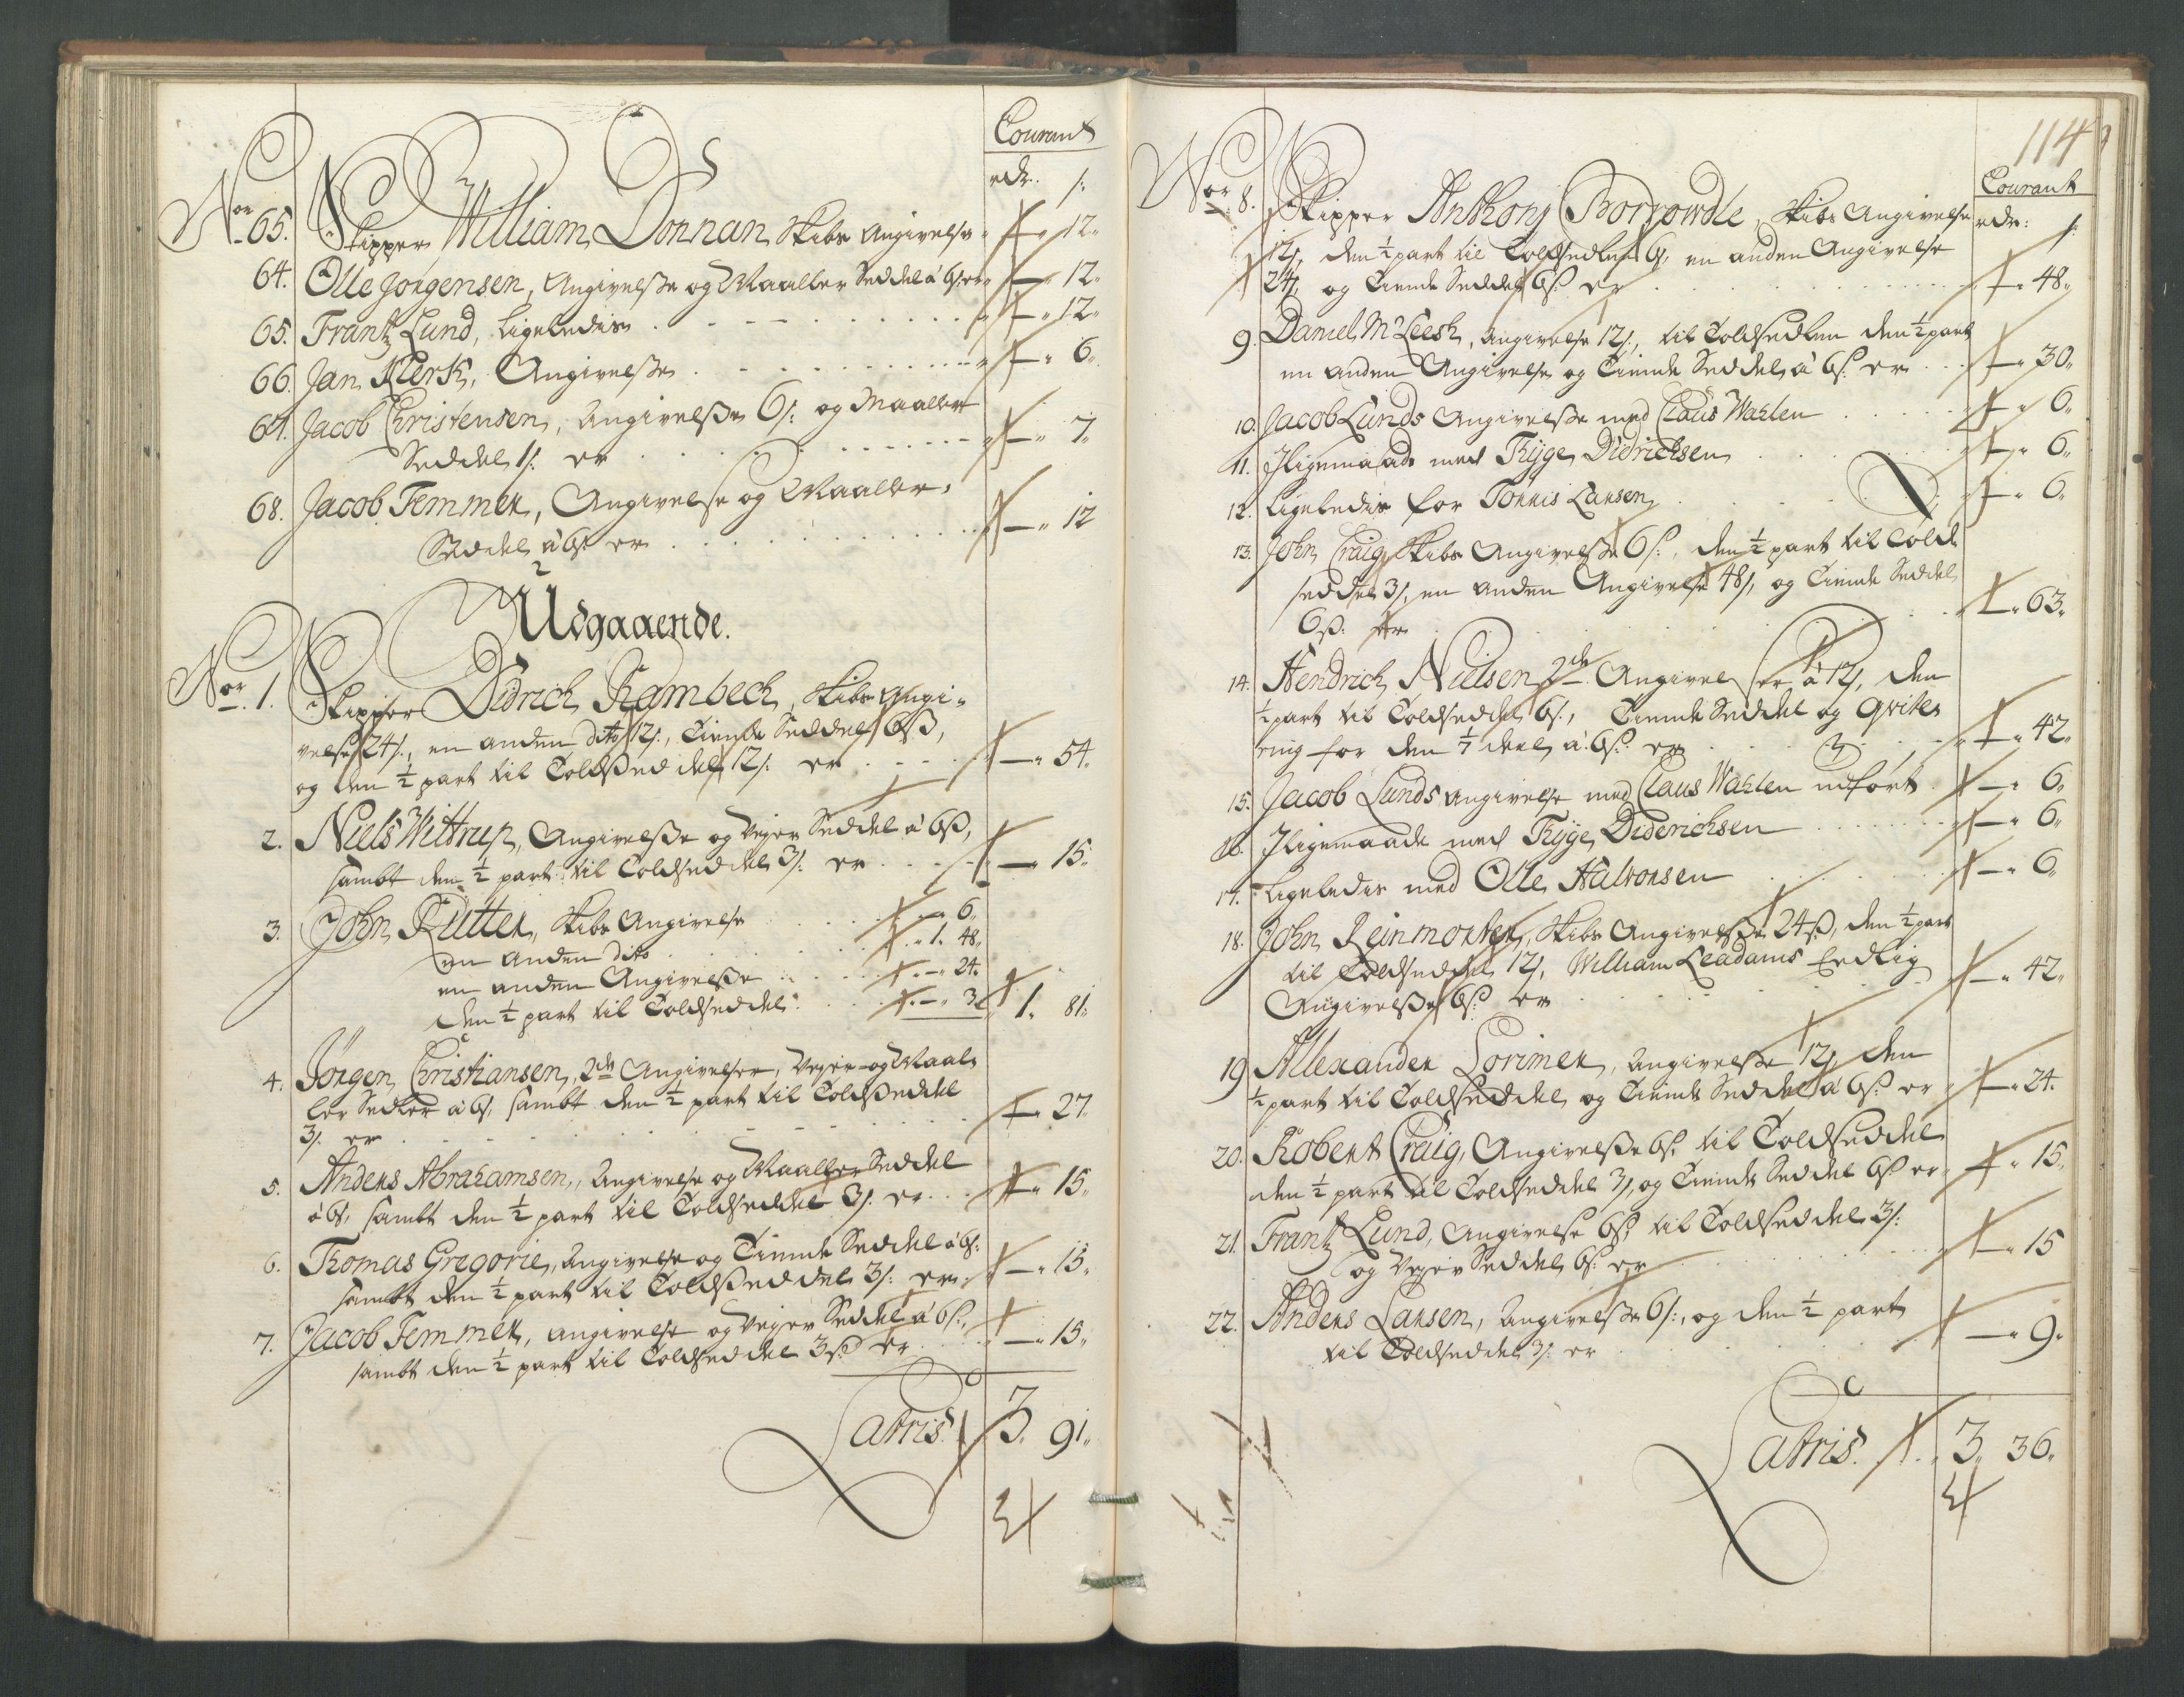 Courant
rdr. s:
No. 65. Skipper William Donnan, Skibs Angivelse - " 12 "
64. Olle Jørgensen, Angivelsse og Maaller Seddel á 6 s: er - " 12 "
65. Frantz Lund, Ligeledis - " 12 "
66. Jan Klerk, Angivelsse - " 6 "
67. Jacob Christensen, Angivelsse 6 s: og Maaller
Seddel 1 s: er - " 7 "
68. Jacob Femmer, Angivelse og Maaller-
Seddel á 6 s: er - " 12
Udgaaende.
No. 1. Skipper Didrich Rambech, Skibs Angi-
velse 24 s:, en anden dito 12 s:, Tiende Seddel 6 ß,
og den ½ part til Toldsseddel 12 s: er - " 54 "
2. Niels Wittrup, Angivelsse og Vejer Seddel á 6 ß,
sambt den ½ part til Toldseddel 3 s: er - " 15 "
3. John Rutter, Skibs Angivelse - " 6 "
en anden dito 1 " 48 "
en anden Angivelsse - " 24 "
den ½ part til Toldseddel - " 3 " 1 " 81 "
4. Jørgen Christiansen, 2de Angivelser, Vejer- og Maal-
ler Sedler á 6 s, sambt den ½ part til Toldsseddel
3 s: er - " 27
5. Anders Abrahamsen, Angivelse og Maaller Seddel
á 6 s, sambt den ½ part til Toldseddel 3 s: er - " 15 "
6. Thomas Gregorie, Angivelse og Tiende Seddel á 6 s:
sambt den ½ part til Toldsseddel 3 s: er - " 15 "
7. Jacob Femmer, Angivelse og Vejer Seddel á 6 s:,
sambt den ½ part til Toldseddel 3 ß er - " 15 "
Latris 3 " 91 "
114
Courant
rdr: s:
No. 8. Skipper Anthonj Borrowdle, Skibs Angivelse
12 s, den ½ part til Toldsedlen 6 s, en anden Angivelse
24 s, og Tiende Seddel 6 ß er - " 48 "
9. Daniel McLeesh, Angivelse 12 s:, til Toldsedlen den ½ part
en anden Angivelse og Tiende Seddel á 6 s: er - " 30 "
10. Jacob Lunds Angivelsse med Claus Wahlen - " 6 "
11. Jligemaade med Thyge Didrichsen - " 6 "
12. Ligeledis for Tønnis Larsen - " 6 "
13. John Craig, Skibs Angivelsse 6 s:, den ½ part til Told
seddel 3 s, en anden Angivelse 48 s, og Tiende Seddel
6 ß. er - " 63 "
14. Hendrich Nielsen 2de Angivelser á 12 s, den
½ part til Toldseddel 6 s:, Tiende Seddel og qvite-
ring for den deel á 6 s: er - " 42 "
15. Jacob Lunds Angivelse med Claus Wahlen udført - " 6 "
16. Jligemaade med Thyge Diderichsen - " 6 "
17. Ligeledis med Olle Halvorsen - " 6 "
18. John Reinmorter, Skibs Angivelsse 24 ß, den ½ part
til Toldseddel 12 s, William Leadams
Angivelsse 6 ß er - " 42 "
19. Allexander Lorimer, Angivelsse 12 s, den
½ part til Toldseddel, og Tiende Seddel á 6 ß er - " 24 "
20. Robert Craig, Angivelsse 6 s: til Toldseddel
den ½ part til Toldseddel 3 s, og Tiende Seddel 6 ß er - " 15 "
21. Frantz Lund, Angivelse 6 s, til Toldseddel 3 s:
og Vejer Seddel 6 s: er - " 15
22. Anders Larsen, Angivelsse 6 s:, og den ½ part
til Toldseddel 3 s: er - " 9 "
Latris. 3 " 36 "